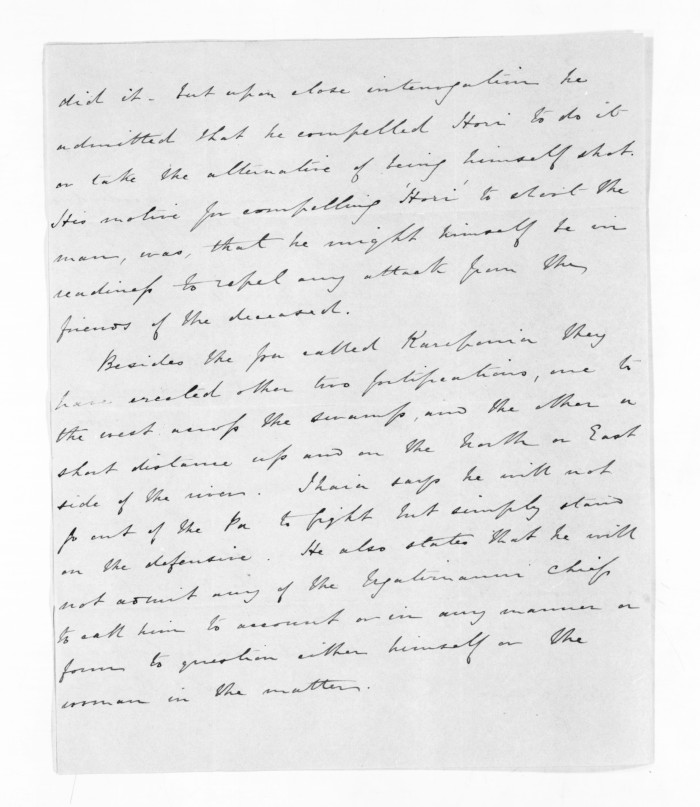 did it - but upon close interrogation he
admitted that he compelled Hori to do it
or take the alternative of being himself shot.
His motive for compelling 'Hori' to shoot the
man, was, that he might himself be in
readiness to repel any attack from the
friends of the deceased.
Besides the pa called Karaponia they
have erected other two fortifications, one to
the west across the swamp, and the other a
short distance up and on the North or East
side of the river. Ihaia says he will not
go out of the Pa to fight but simply stand
on the defensive. He also states that he will
not admit any of the Ngatimaniapoto Chiefs
to call him to account or in any manner or
form to question either himself or the
woman in the matter.